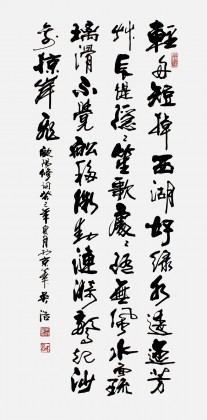 輕舟短棹西湖好綠水逶迤芳
艸長堤隱隱笙歌處處隨無風水面琉
璃滑不覺船移微動漣漪驚起沙
禽掠岸飛
歐陽修詞